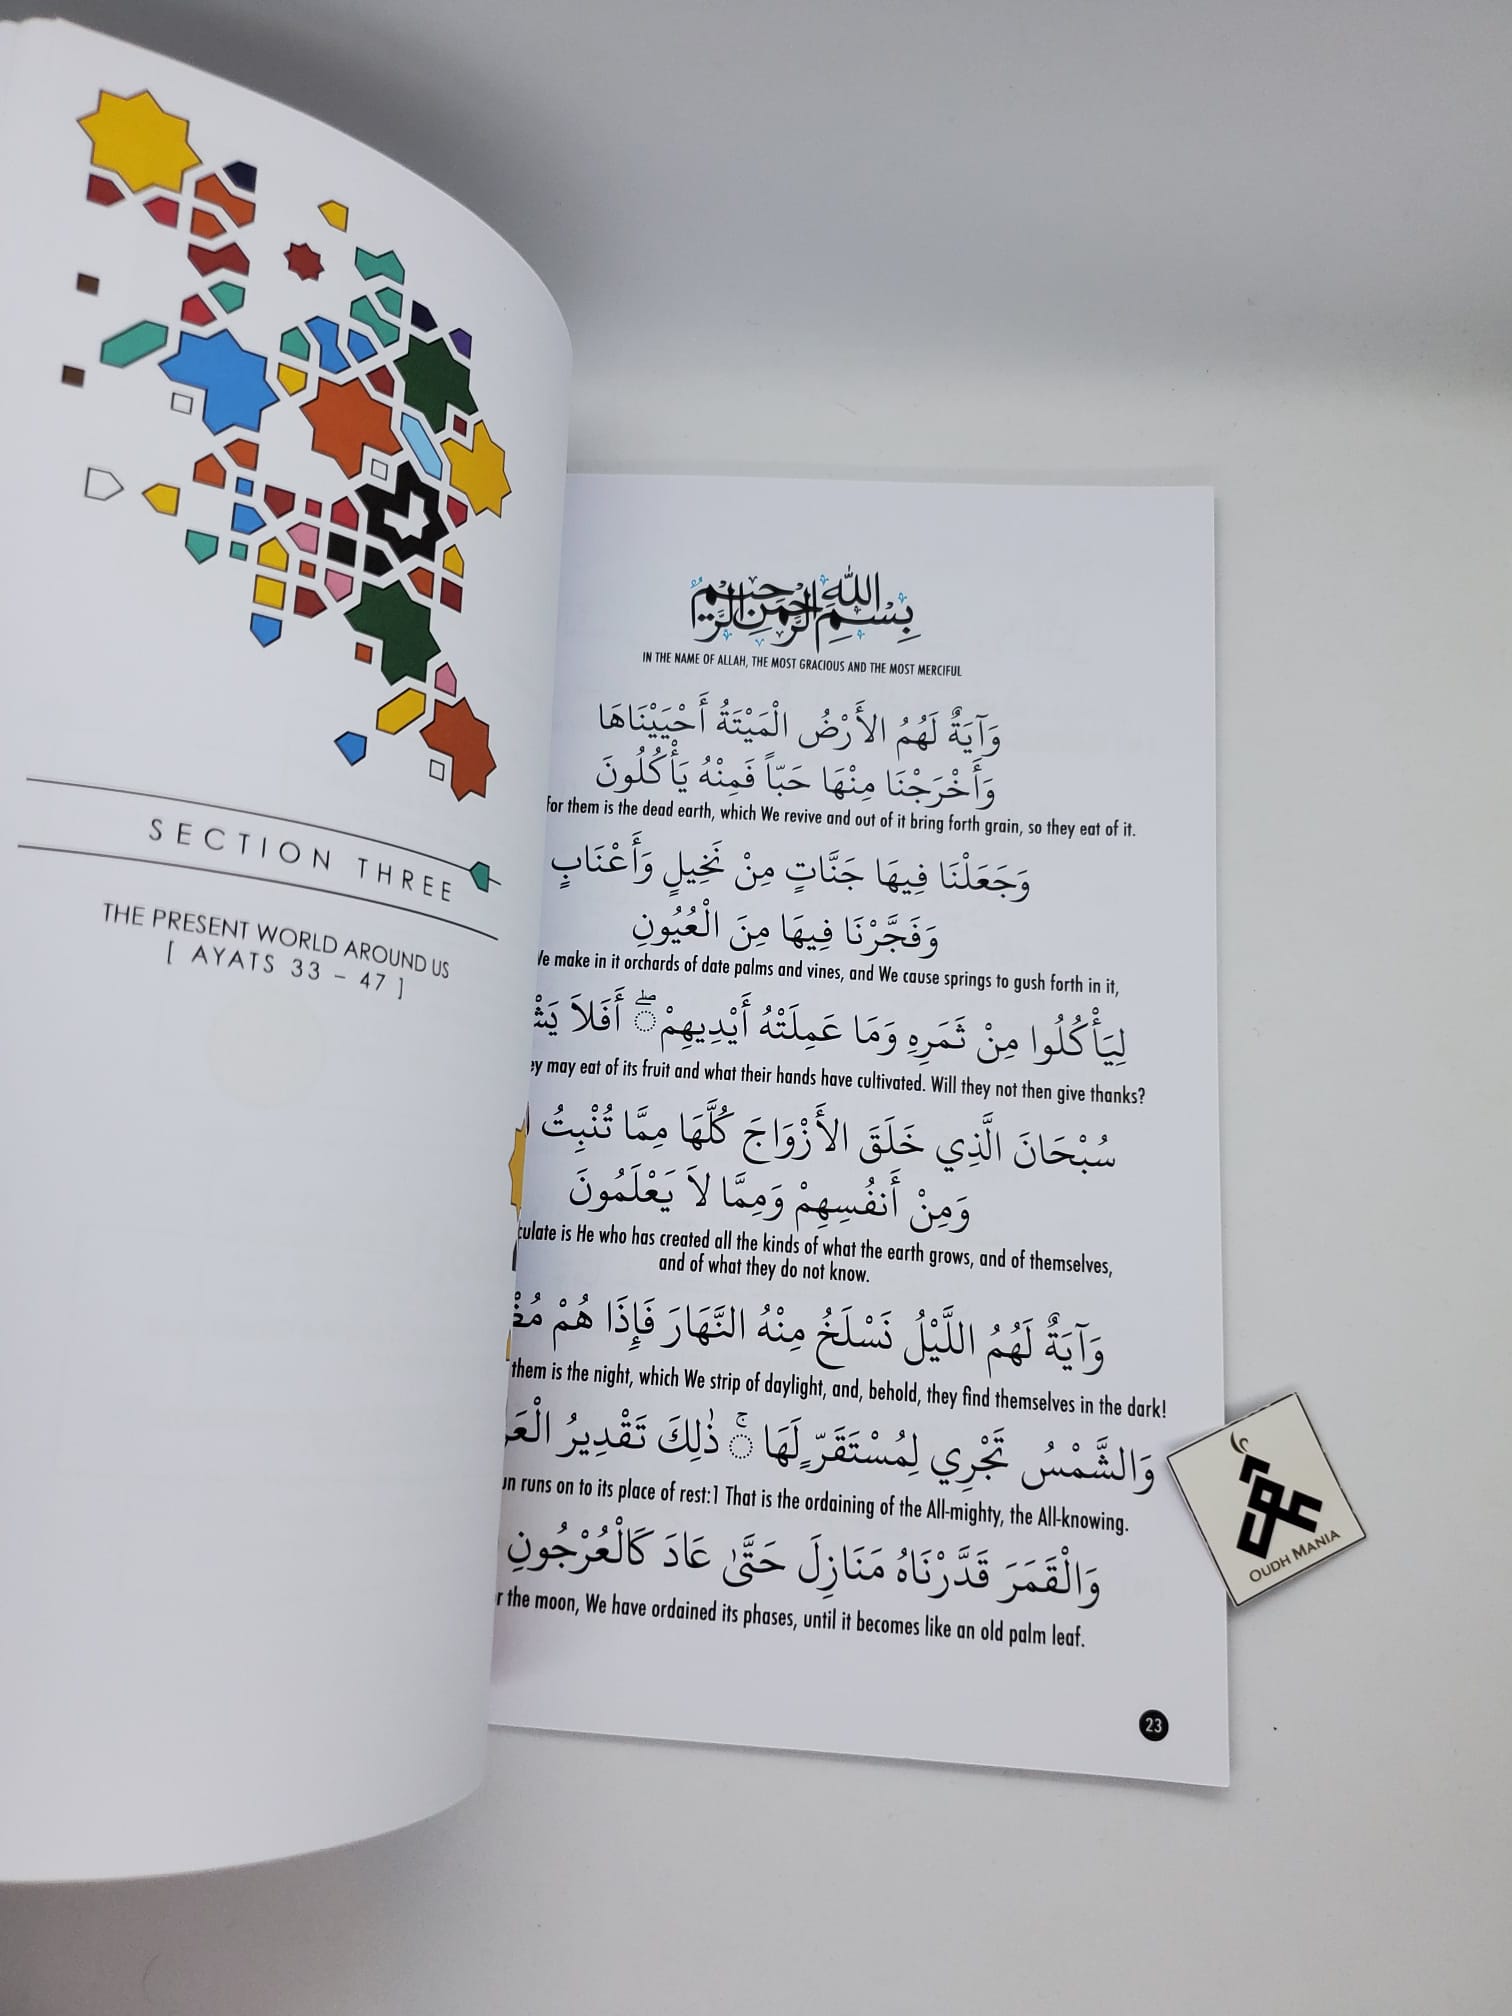 SECTION THREE
THE PRESENT WORLD AROUND US
[ AYATS 33 – 47 ]
بِسْمِ اللَّهِ الرَّحْمَنِ الرَّحِيمِ
IN THE NAME OF ALLAH, THE MOST GRACIOUS AND THE MOST MERCIFUL
وَآيَةٌ لَهُمُ الأَرْضُ الْمَيْتَةُ أَحْيَيْنَاهَا
وَأَخْرَجْنَا مِنْهَا حَبّاً فَمِنْهُ يَأْكُلُونَ
for them is the dead earth, which We revive and out of it bring forth grain, so they eat of it.
وَجَعَلْنَا فِيهَا جَنَّاتٍ مِنْ نَخِيلٍ وَأَعْنَابٍ
وَفَجَّرْنَا فِيهَا مِنَ الْعُيُونِ
We make in it orchards of date palms and vines, and We cause springs to gush forth in it,
لِيَأْكُلُوا مِنْ ثَمَرِهِ وَمَا عَمِلَتْهُ أَيْدِيهِمْ ۖ أَفَلاَ
may eat of its fruit and what their hands have cultivated. Will they not then give thanks?
سُبْحَانَ الَّذِي خَلَقَ الأَزْوَاجَ كُلَّهَا مِمَّا تُنْبِتُ
وَمِنْ أَنفُسِهِمْ وَمِمَّا لاَ يَعْلَمُونَ
is He who has created all the kinds of what the earth grows, and of themselves,
and of what they do not know.
وَآيَةٌ لَهُمُ اللَّيْلُ نَسْلَخُ مِنْهُ النَّهَارَ فَإِذَا هُمْ
them is the night, which We strip of daylight, and, behold, they find themselves in the dark!
وَالشَّمْسُ تَجْرِي لِمُسْتَقَرٍّ لَهَا ۚ ذَٰلِكَ تَقْدِيرُ
runs on to its place of rest:1 That is the ordaining of the All-mighty, the All-knowing.
وَالْقَمَرَ قَدَّرْنَاهُ مَنَازِلَ حَتَّىٰ عَادَ كَالْعُرْجُونِ
the moon, We have ordained its phases, until it becomes like an old palm leaf.
23
عود
OUDH MANIA